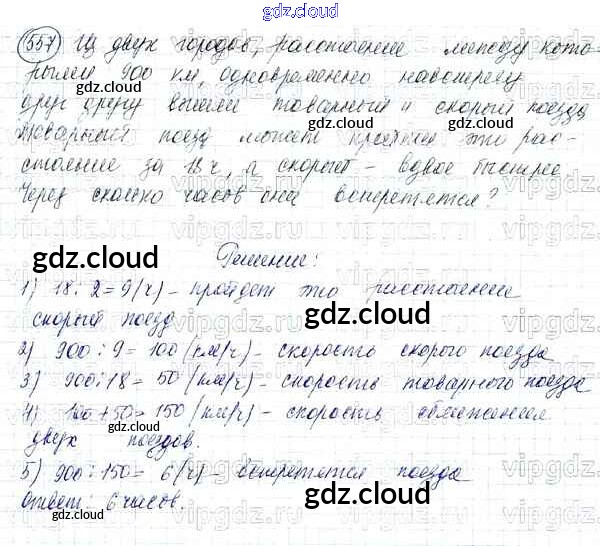 gdz.cloud
557 Из двух городов, расстояние между кото-
рыми 900 км, одновременно навстречу
друг другу вышли товарный и скорый поезда
gdz.cloud gdz.cloud
Товарный поезд может пройти это рас-
стояние за 18 ч, а скорый - вдвое быстрее.
gdz.cloud gdz.cloud
Через сколько часов они встретятся?
gdz.cloud
Решение:
gdz.cloud gdz.cloud
1) 18:2=9(ч) - пройдет это расстояние
скорый поезд
2) 900:9=100(км/ч) - скорость скорого поезда
gdz.cloud
3) 900:18=50(км/ч) - скорость товарного поезда
4) 100+50=150(км/ч) - скорость сближения
gdz.cloud
двух поездов.
5) 900:150=6(ч) встретятся поезда
gdz.cloud
Ответ: 6 часов.
gdz.cloud gdz.cloud